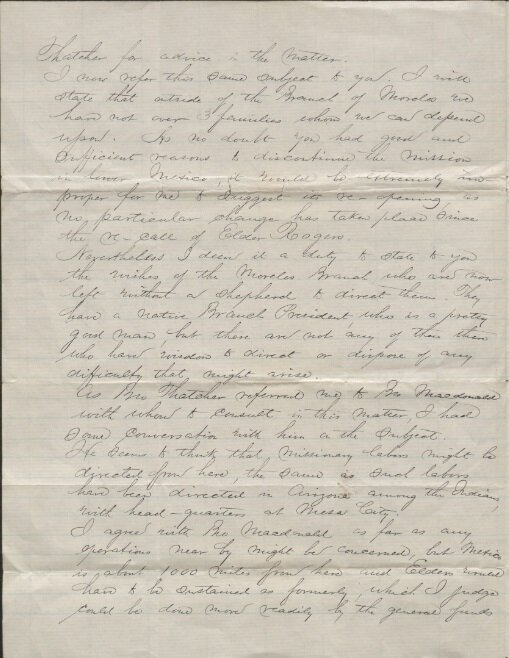 Thatcher for advice in the matter.
I now refer this same subject to you. I will
state that outside of the Branch of Morelos we
have not over 3 families whom we can depend
upon. As no doubt you had good and
sufficient reasons to discontinue the mission
in lower Mexico, it would be extremely im-
proper for me to suggest its re-opening, as
no particular change has taken place since
the re-call of Elder Rogers.
Nevertheless I deem it a duty to state to you
the wishes of the Morelos Branch, who are now
left without a shepherd to direct them. They
have a native Branch President, who is a pretty
good man, but there are not any of them there
who have wisdom to direct or dispose of any
difficulty that might arise.
As Bro Thatcher referred me to Bro Macdonald
with whom to consult in this matter, I had
some conversation with him on the subject.
He seems to think that missionary labors might be
directed from here, the same as such labors
have been directed in Arizona among the Indians,
with head-quarters at Mesa City.
I agree with Bro Macdonald as far as any
operations near by might be concerned, but Mexico
is about 1000 miles from here and Elders would
have to be sustained as formerly, which I judge
could be done more readily by the general funds